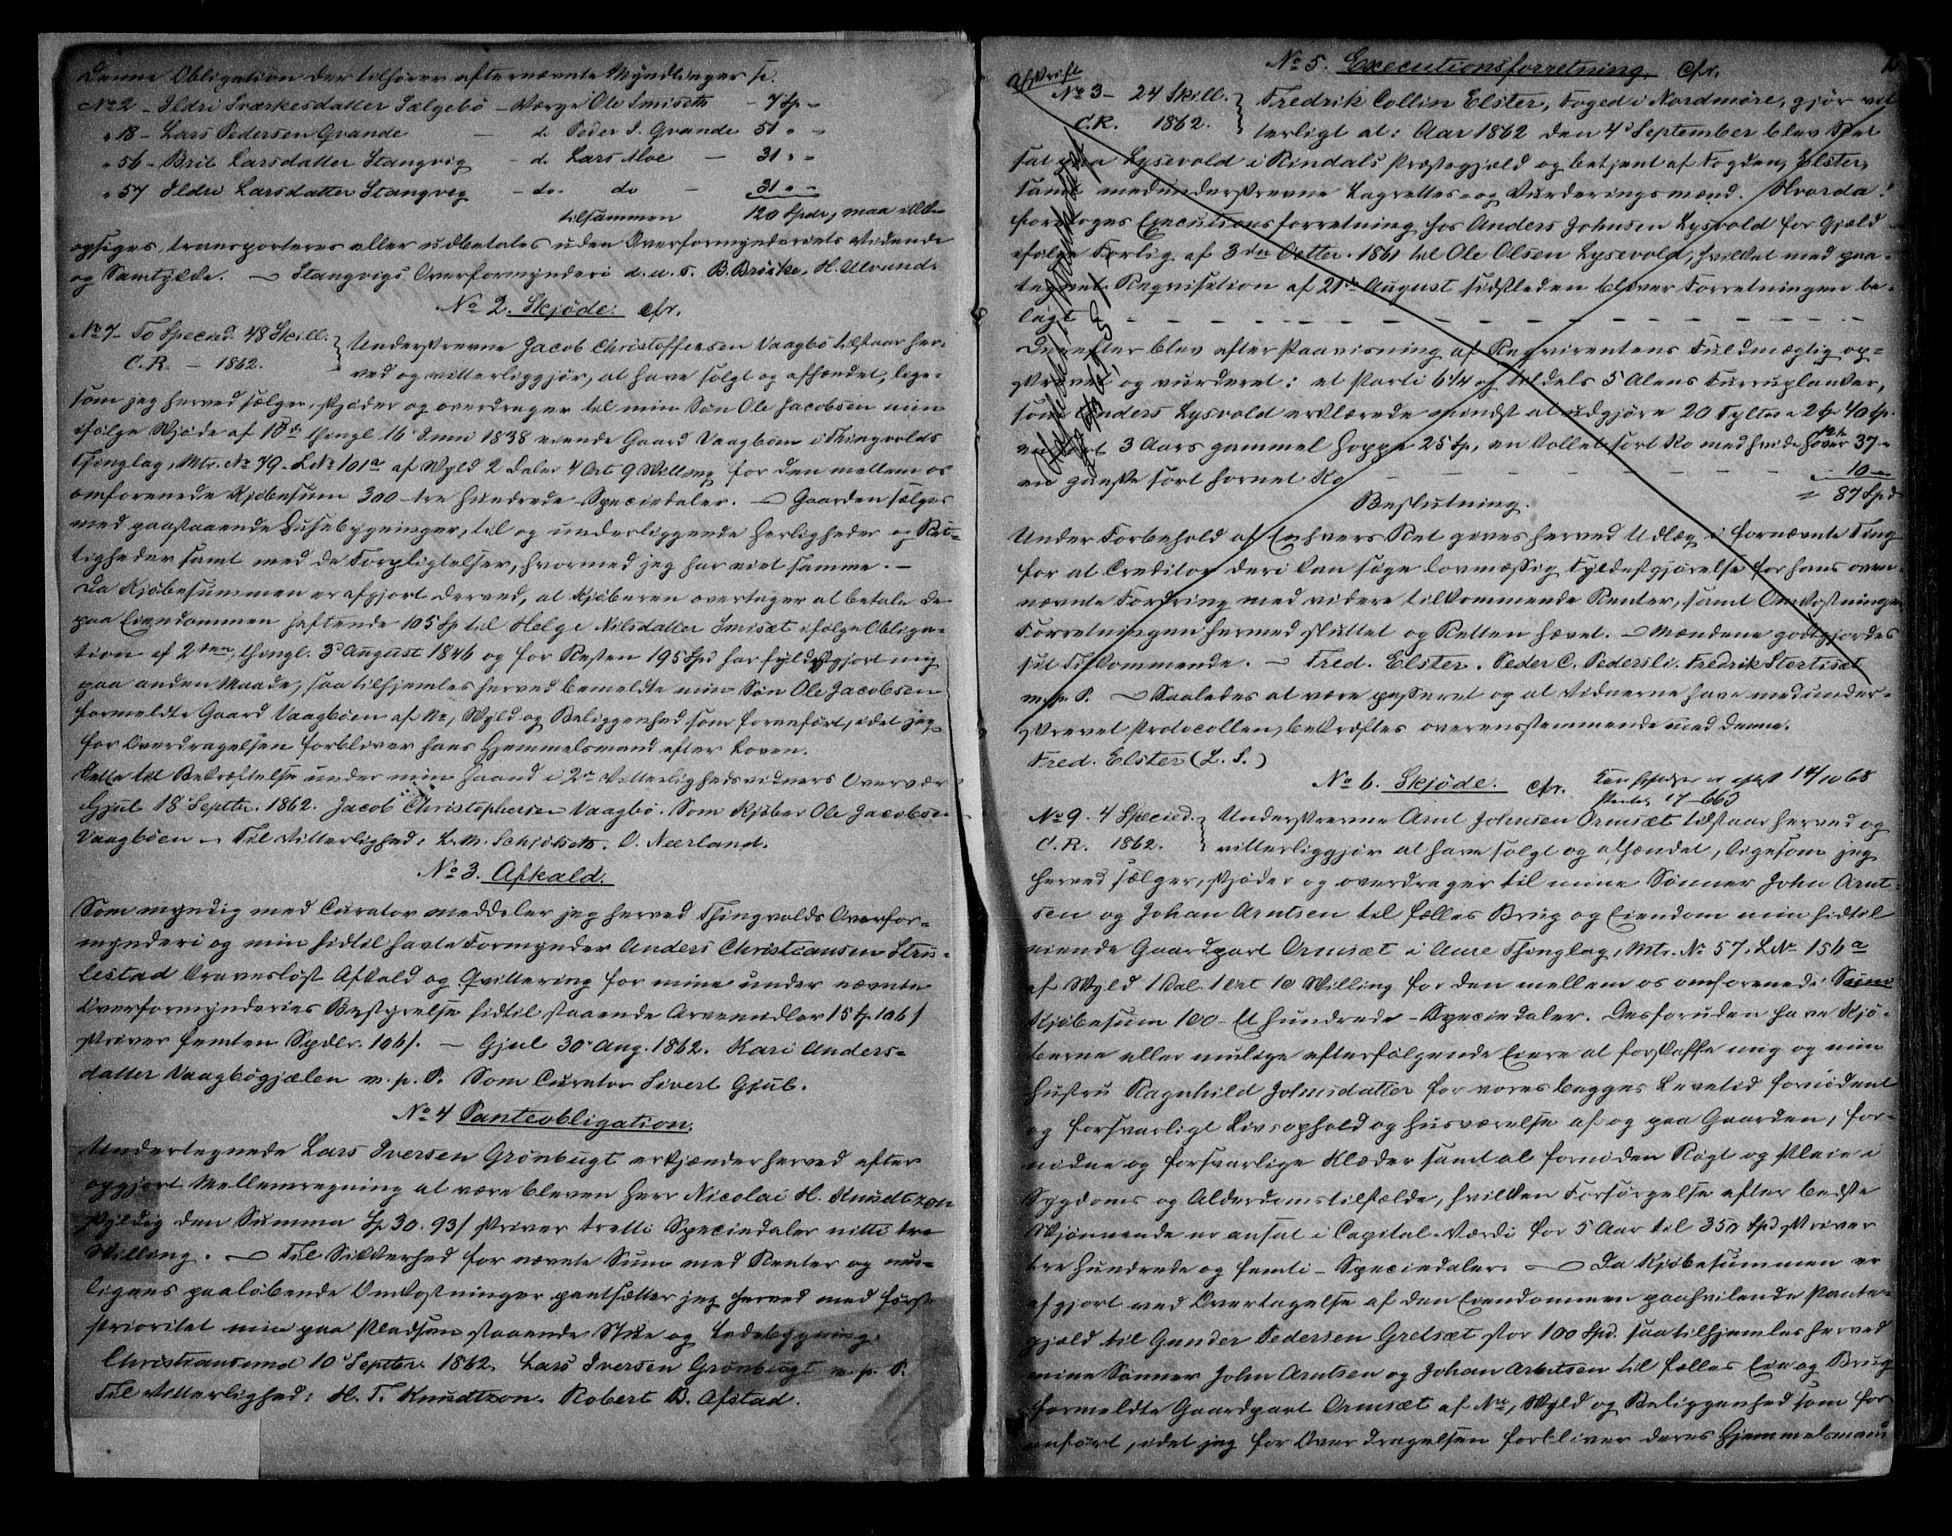 Denne Obligation der tilhører efternævnte Myndlinger p.
No 2 - Ildri Sværkesdatter Sælgebø - Værge Ole Smiseth - 7 Sp -
" 18 - Lars Pedersen Grande - do Peder I. Grande 51 " -
" 56 - Brit Larsdatter Stangvig - do Lars Moe - 31 " -
" 57 Ildri Larsdatter Stangvig - do - do - 31 " -
tilsammen 120 Spdlr, maa ikke
opsiges, transporteres eller udbetales uden Overformynderiets Vidende
og Samtykke. — Stangvigs Overformynderi d. u. s. B. Brøske. H. Ulvund.
No 2. Skjøde. cfr.
No 7 - To Specied. 48 Skill.
C.R. - 1862.
Underskrevne Jacob Christoffersen Vaagbø tilstaar her-
ved og vitterliggjør, at have solgt og afhændet, lige-
som jeg herved sælger, skjøder og overdrager til min Søn Ole Jacobsen min
ifølge Skjøde af 18de thingl. 16 Juni 1838 eiende Gaard Vaagbøen i Thingvolds
Thinglag, Mtr. No 79. L No 101a af Skyld 2 Daler 4 Ort 9 Skilling for den mellem os
omforenede Kjøbesum 300 - tre hundrede - Speciedaler. — Gaarden sælges
med paastaaende Husebygninger, til og underliggende Herligheder og Ret-
tigheder samt med de Forpligtelser, hvormed jeg har eiet samme. —
Da Kjøbesummen er afgjort derved, at Kjøberen overtager at betale de
paa Eiendommen heftende 105 Sp til Helge Nilsdatter Smisæt ifølge Obliga-
tion af 2den, thingl. 3 August 1846 og for Resten 195 Spd har fyldestgjort mig
paa anden Maade, saa tilhjemles herved bemeldte min Søn Ole Jacobsen
formeldte Gaard Vaagbøen af No, Skyld og Beliggenhed som foranført, idet jeg
for Overdragelsen forbliver hans Hjemmelsmand efter Loven.
Dette til Bekræftelse under min Haand i 2de Vitterlighedsvidners Overvær
Gjul 18 Septbr. 1862. Jacob Christophersen Vaagbø. Som Kjøber Ole Jacobsen
Vaagbøen — Til Vitterlighed: L. M. Schjølseth. O. Neerland.
No 3. Afkald.
Som myndig med Curator meddeler jeg herved Thingvolds Overfor-
mynderi og min hidtil havte Formynder Anders Christiansen Stru-
lestad kravesløst Afkald og Qvittering for mine under nævnte
Overformynderies Bestyrelse hidtil staaende Arvemidler 15 Sp 106 s
skriver femten Spdlr. 106 s. — Gjul 30 Aug. 1862. Kari Anders-
datter Vaagbøgjælen m. p. P. Som Curator Sivert Gjul.
No 4 Panteobligation.
Undertegnede Lars Iversen Grønbugt erkjænder herved efter
opgjort Mellemregning at være bleven Herr Nicolai H. Knudtzon
skyldig den Summa Sp 30. 93 s skriver tretti Speciedaler nitti tre
Skilling. — Til Sikkerhed for nævnte Sum med Renter og mu-
ligens paaløbende Omkostninger pantsætter jeg herved med første
Prioritet min paa Pladsen staaende Stue og Ladebygning.
Christiansund 10 Septbr 1862. Lars Iversen Grønbugt m. p. P.
Til Vitterlighed: H. T. Knudtzon. Robert B. Afstad.
No 5. Executionsforretning. cfr.
Afskrift
No 3 - 24 Skill.
C.R. 1862.
Fredrik Collin Elster, Foged i Nordmøre, gjør vit-
terligt at: Aar 1862 den 4 September blev Ret
sat paa Lysevold i Rindals Præstegjæld og betjent af Fogden, Elster,
samt medunderskrevne Lagrettes- og Vurderingsmænd. Hvorda:
foretoges Executionsforretning hos Anders Johnsen Lysvold for Gjæld
ifølge Forlig af 3die Octbr. 1861 til Ole Olsen Lysevold, hvilket med paa-
tegnet Reqvisition af 21de August sidstleden bliver Forretningen be-
lagt - - - -
Derefter blev efter Paavisning af Reqvirentens Fuldmægtig op-
skrevet og vurderet: et Parti 6 1/4 og tildels 5 Alens Furruplanker,
som Anders Lysvold erklærede mindst at udgjøre 20 Tylter a 2 Sp 40 Sp.
3 Aars gammel Hoppe 25 Sp, en kollet sort Ko med hvide 12 Sp 37 "
en ganske sort hornet Ko - - - 10 "
= 87 Spd
Beslutning.
Under Forbehold af Enhvers Ret gives herved Udlæg i fornævnte Ting
for at Creditor deri kan søge lovmæssig Fyldestgjørelse for hans oven-
nævnte Fordring med videre tilkommende Renter, samt Omkostninger
Forretningen hermed sluttet og Retten hævet. — Mændene godtgjordes
sit Tilkommende. — Fred. Elster. Peder C. Pedersli. Fredrik Stortisæt
m. p. P. — Saaledes at være passeret og at Vidnerne have medunder-
skrevet Protocollen, bekræftes overensstemmende med denne.
Fred. Elster (L. S.)
No 6. Skjøde. cfr. 14/10 68
17 - 663
No 9. 4 Specied.
C.R. 1862.
Underskrevne Arnt Johnsen Ormsæt tilstaar herved og
vitterliggjør at have solgt og afhændet, ligesom jeg
herved sælger, skjøder og overdrager til mine Sønner John Arnt-
sen og Johan Arntsen til fælles Brug og Eiendom min hidtil
eiende Gaardpart Ormsæt i Aure Thinglag, Mtr. No 57, L No 154a
af Skyld 1 Dal. 1 Ort 10 Skilling for den mellem os omforenede
Kjøbesum 100 - Et hundrede - Speciedaler. Desforuden have Kjø-
berne eller mulige efterfølgende Eiere at forskaffe mig og min
Hustru Ragnhild Johnsdatter for vores begges Levetid fornødent
og forsvarligt Livsophold og Husværelse af og paa Gaarden, for-
nødne og forsvarlige Klæder samt al fornøden Røgt og Pleie i
Sygdoms og Alderdomstilfælde, hvilken Forsørgelse efter bedste
Skjønnende er ansat i Capital-Værdi for 5 Aar til 350 Spd skriver
tre hundrede og femti - Speciedaler. — Da Kjøbesummen er
afgjort ved Overtagelse af den Eiendommen paahvilende Pante-
gjæld til Gunder Pedersen Gretsæt stor 100 Spd. saa tilhjemles herved
mine Sønner John Arntsen og Johan Arntsen til fælles Eie og Brug
formeldte Gaardpart Ormsæt af No, Skyld og Beliggenhed som for
anført, idet jeg for Overdragelsen forbliver deres Hjemmelsmand